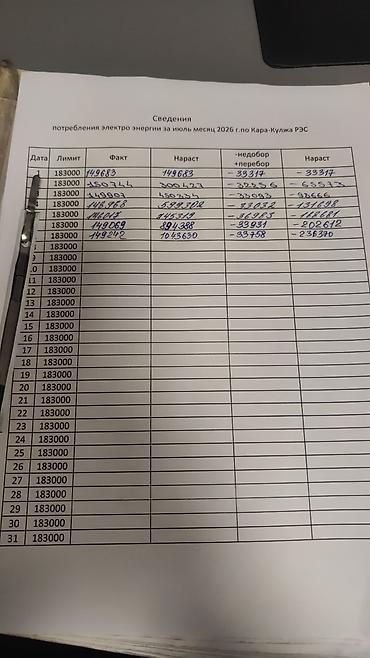 Сведения
потребления электро энергии за июль месяц 2026 г.по Кара-Кулжа РЭС
Дата Лимит Факт Нараст -недобор +перебор Нараст
183000 149683 149683 -33317 -33317
183000 150744 300427 -32256 -65573
183000 149907 450334 -33093 -98666
183000 148968 599302 -33032 -131698
183000 146017 745319 -36983 -168681
183000 149069 894388 -33931 -202612
183000 149242 1043630 -33758 -236370
183000
183000
183000
11 183000
12 183000
13 183000
14 183000
15 183000
16 183000
17 183000
18 183000
19 183000
20 183000
21 183000
22 183000
23 183000
24 183000
25 183000
26 183000
27 183000
28 183000
29 183000
30 183000
31 183000